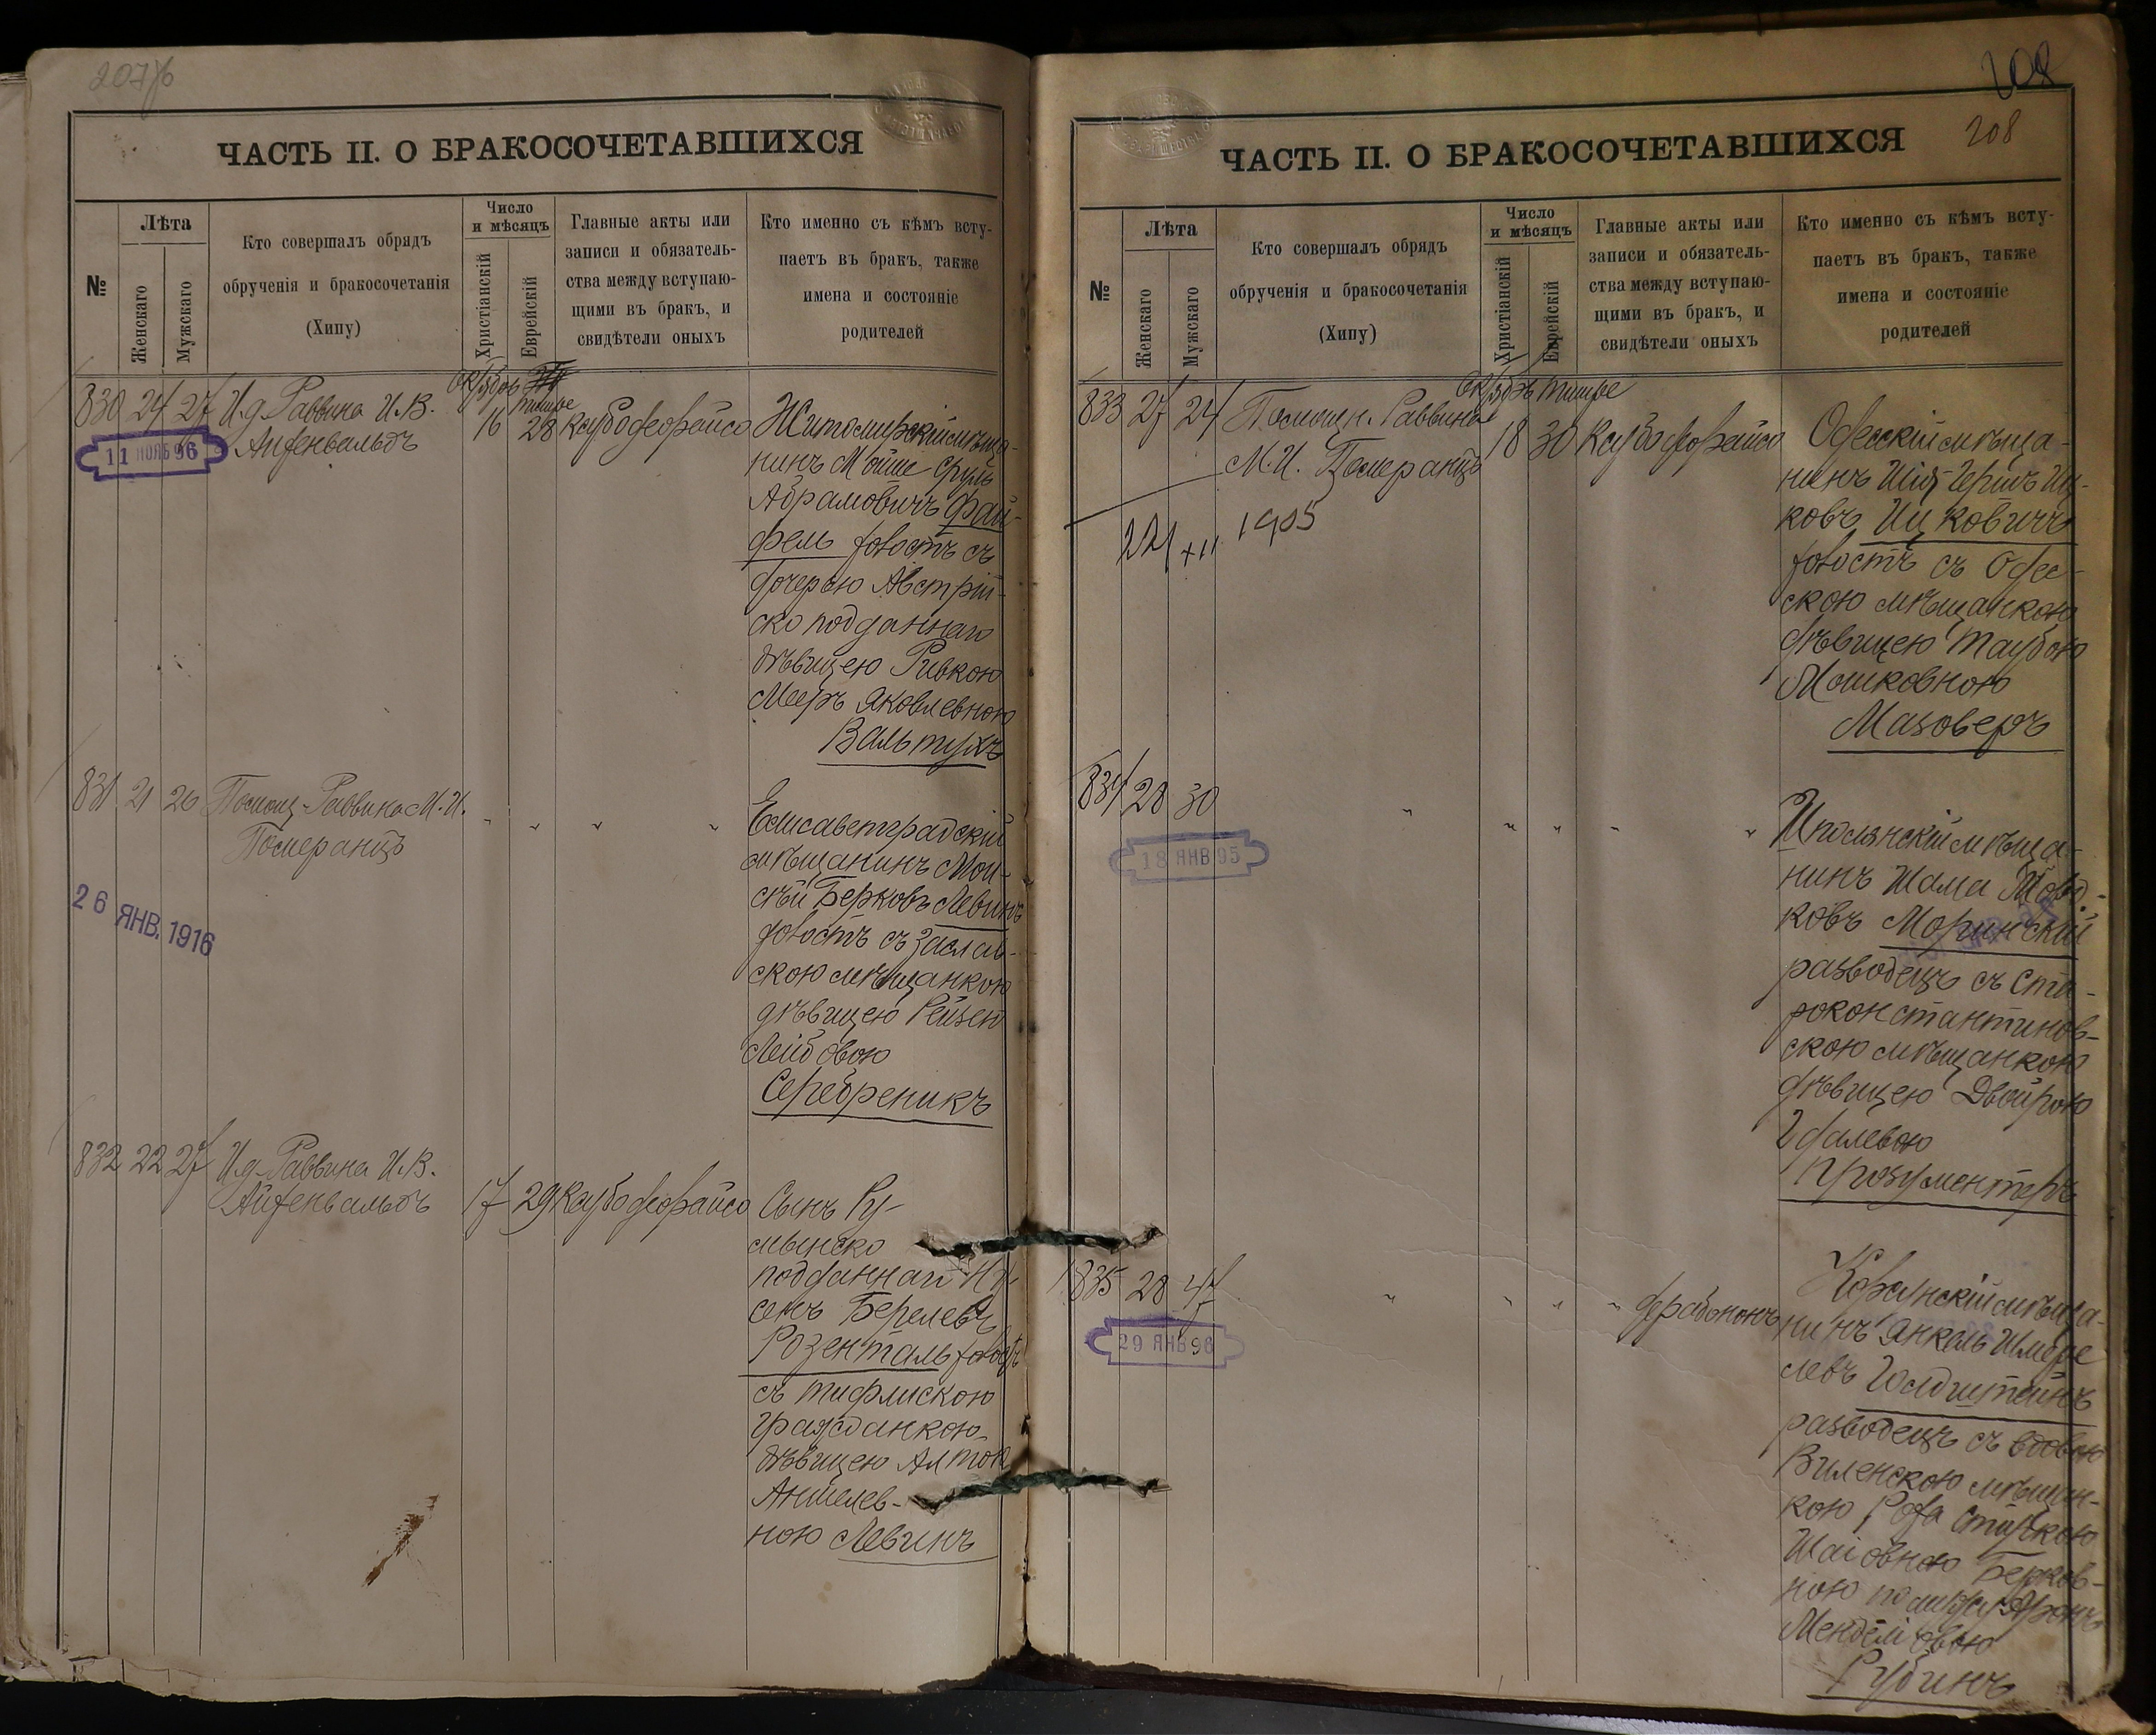 207 об
ЧАСТЬ II. О БРАКОСОЧЕТАВШИХСЯ
№
Лѣта
Женскаго
Мужскаго
Кто совершалъ обрядъ
обрученія и бракосочетанія
(Хипу)
Число
и мѣсяцъ
Христіанскій
Еврейскій
Главные акты или
записи и обязатель-
ства между вступаю-
щими въ бракъ, и
свидѣтели оныхъ
Кто именно съ кѣмъ всту-
паетъ въ бракъ, также
имена и состояніе
родителей
830 24 27 И.д. Раввина И.В.
Айзенвальдъ
Октябрь Тишре
16 28 Каубодеорайсо
11 НОЯБ 96
Житомирскій мѣща-
нинъ Мойше-Сруль
Абрамовичъ Фай-
фель холостъ съ
дочерью Австрій-
ско подданнаго
дѣвицею Ривкою
Мееръ Яковлевною
Вальтухъ
831 21 26 Помощ. Раввина М.И.
Померанцъ
26 ЯНВ. 1916
Елисаветградскій
мѣщанинъ Мои-
сѣй Берковъ Левинъ
холостъ съ Заслав-
скою мѣщанкою
дѣвицею Рейзею
Лейбовою
Серебреникъ
832 22 27 И.д. Раввина И.В.
Айзенвальдъ
17 29 Каубодеорайсо
Сынъ Ру-
мынско
подданнаго Ну-
сенъ Берелевъ
Розенталь холостъ
съ тифлискою
гражданкою
дѣвицею Алтою
Аншелев-
ною Левинъ
208
208
ЧАСТЬ II. О БРАКОСОЧЕТАВШИХСЯ
№
Лѣта
Женскаго
Мужскаго
Кто совершалъ обрядъ
обрученія и бракосочетанія
(Хипу)
Число
и мѣсяцъ
Христіанскій
Еврейскій
Главные акты или
записи и обязатель-
ства между вступаю-
щими въ бракъ, и
свидѣтели оныхъ
Кто именно съ кѣмъ всту-
паетъ въ бракъ, также
имена и состояніе
родителей
833 27 24 Помощн. Раввина
М.И. Померанцъ
Октябрь Тишре
18 30 Каубодеорайсо
XII 1905
Одесскій мѣща-
нинъ Шія-Гершъ Иц-
ковъ Ицковичъ
холостъ съ Одес-
скою мѣщанкою
дѣвицею Таубою
Мошковною
Мазоверъ
834 28 30 " " " " "
18 ЯНВ 95
Шполянскій мѣща-
нинъ Шама Мовд-
ковъ Моринскій
разводецъ съ Ста-
роконстантинов-
скою мѣщанкою
дѣвицею Двойрою
Гдалевою
Прозументеръ
835 28 47 " " " " дерабононъ
29 ЯНВ 96
мѣща-
нинъ Янкель Шмере
левъ Голдштейнъ
разводецъ съ вдовою
Виленскою мѣщан-
кою
Шаіовною Берков-
ною по мужу Аронъ
Менделіовою
Рубинъ